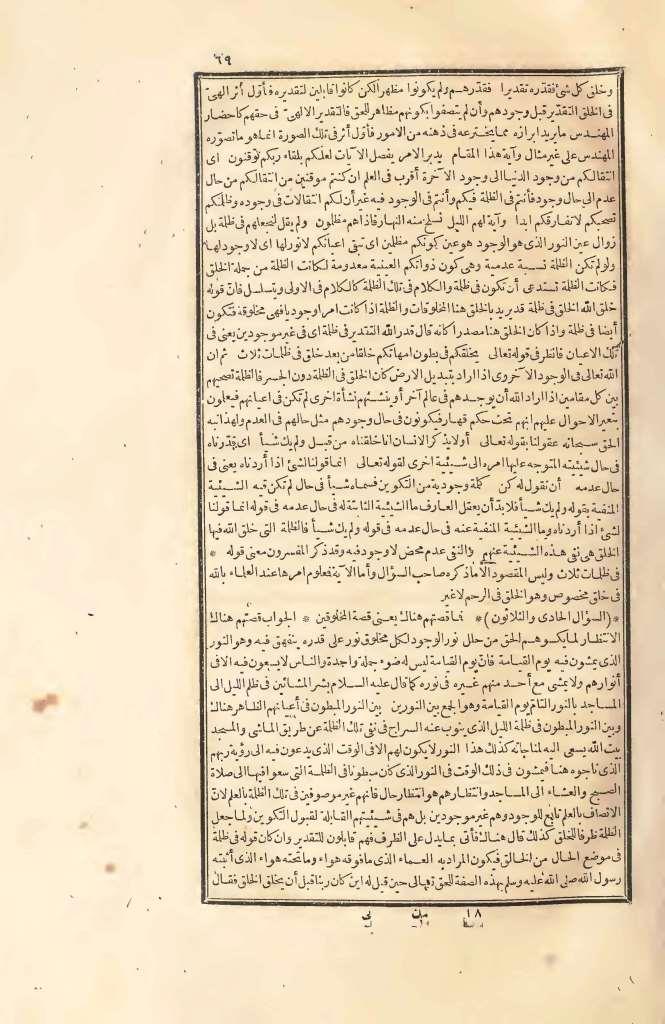 ٦٩
وخلق كل شئ فقدره تقديرا فقدرهم ولم يكونوا مظهرا لكن كانوا قابلين لتقديره فأول أثر الهى
فى الخلق التقدير قبل وجودهم وأن لم يتصفوا بكونهم مظاهر للحق فالتقدير الالهى فى حقهم كاحضار
المهندس ما يريد ابرازه مما يخترعه فى ذهنه من الامور فأول أثر فى تلك الصورة انما هو ما تصوره
المهندس على غير مثال وآية هذا المقام يدبر الامر يفصل الآيات لعلكم بلقاء ربكم توقنون أى
انتقالكم من وجود الدنيا الى وجود الآخرة أقرب فى العلم ان كنتم موقنين من انتقالكم من حال
عدم الى حال وجود فأنتم فى الظلمة فيكم وأنتم فى الوجود فيه غير أن لكم انتقالات فى وجوده وظلمتكم
تصحبكم لا تفارقكم أبدا وآية لهم الليل نسلخ منه النهار فاذا هم مظلمون ولم يقل نجعلهم فى ظلمة بل
زوال عين النور الذى هو الوجود هو عين كونكم مظلمين أى تبقى أعيانكم لا نور لها أى لا وجود لها
ولو لم تكن الظلمة نسبة عدمية وهى كون ذواتكم العينية معدومة لكانت الظلمة من جملة الخلق
فكانت الظلمة تستدعى أن تكون فى ظلمة والكلام فى تلك الظلمة كالكلام فى الاولى ويتسلسل فان قوله
خلق الله الخلق فى ظلمة قد يريد بالخلق هنا المخلوقات والظلمة اذا كانت أمرا وجوديا فهى مخلوقة فتكون
أيضا فى ظلمة واذا كان الخلق هنا مصدرا كانه قال قدر الله التقدير فى ظلمة أى فى غير موجودين يعنى فى
تلك الاعيان فانظر فى قوله تعالى يخلقكم فى بطون أمهاتكم خلقا من بعد خلق فى ظلمات ثلاث ثم ان
الله تعالى فى الوجود الاخروى اذا أراد تبديل الارض كان الخلق فى الظلمة دون الجسر فالظلمة تصحبهم
بين كل مقامين اذا أراد الله أن يوجدهم فى عالم آخر أو ينشئهم نشأة أخرى لم تكن فى أعيانهم فيعلمون
بتغير الاحوال عليهم انهم تحت حكم قهار فيكونون فى حال وجودهم مثل حالهم فى العدم ولهذا نبه
الحق سبحانه عقولنا بقوله تعالى أولا يذكر الانسان انا خلقناه من قبل ولم يك شيأ أى قدرناه
فى حال شيئيته المتوجه عليها أمره الى شيئية أخرى لقوله تعالى انما قولنا لشئ اذا أردناه يعنى فى
حال عدمه أن نقول له كن كلمة وجودية من التكوين فسماه شيأ فى حال لم تكن فيه الشيئية
المنفية بقوله ولم يك شيأ فلا بد أن يعقل العارف ما الشيئية الثابتة له فى حال عدمه فى قوله انما قولنا
لشئ اذا أردناه وما الشيئية المنفية عنه فى حال عدمه فى قوله ولم يك شيأ فالظلمة التى خلق الله فيها
الخلق هى نفى هذه الشيئية عنهم والنفى عدم محض لا وجود فيه وقد ذكر المفسرون معنى قوله *
فى ظلمات ثلاث وليس المقصود الا ما ذكره صاحب السؤال وأما الآية فمعلوم أمرها عند العلماء بالله
فى خلق مخصوص وهو الخلق فى الرحم لا غير
* (السؤال الحادى والثلاثون) * فما قصتهم هناك يعنى قصة المخلوقين * الجواب قصتهم هناك
الانتظار لما يكسوهم الحق من حلل نور الوجود لكل مخلوق نور على قدره ينفهق فيه وهو النور
الذى يمشون فيه يوم القيامة فان يوم القيامة ليس له ضوء جملة واحدة والناس لا يسعون فيه الا فى
أنوارهم ولا يمشى مع أحد منهم غيره فى نوره كما قال عليه السلام بشر المشائين فى ظلم الليل الى
المساجد بالنور التام يوم القيامة وهو الجمع بين النورين بين النور المبطون فى أعيانهم الظاهر هناك
وبين النور المبطون فى ظلمة الليل الذى ينوب عنه السراج فى نفى تلك الظلمة عن طريق الماشى والمسجد
بيت الله يسعى اليه لمناجاته كذلك هذا النور لا يكون لهم الا فى الوقت الذى يدعون فيه الى رؤية ربهم
الذى ناجوه هنا فيمشون فى ذلك الوقت فى النور الذى كان مبطونا فى الظلمة التى سعوا فيها الى صلاة
الصبح والعشاء الى المساجد وانتظارهم هو انتظار حال فانهم غير موصوفين فى تلك الظلمة بالعلم لان
الاتصاف بالعلم تابع للوجود وهم غير موجودين بل هم فى شيئيتهم القابلة لقبول التكوين ولما جعل
الظلمة ظرفا للخلق كذلك قال هناك فأتى بما يدل على الظرف فهم قابلون للتقدير وان كان قوله فى ظلمة
فى موضع الحال من الخالق فيكون المراد به العماء الذى ما فوقه هواء وما تحته هواء الذى أثبته
رسول الله صلى الله عليه وسلم بهذه الصفة للحق تعالى حين قيل له أين كان ربنا قبل أن يخلق الخلق فقال
١٨